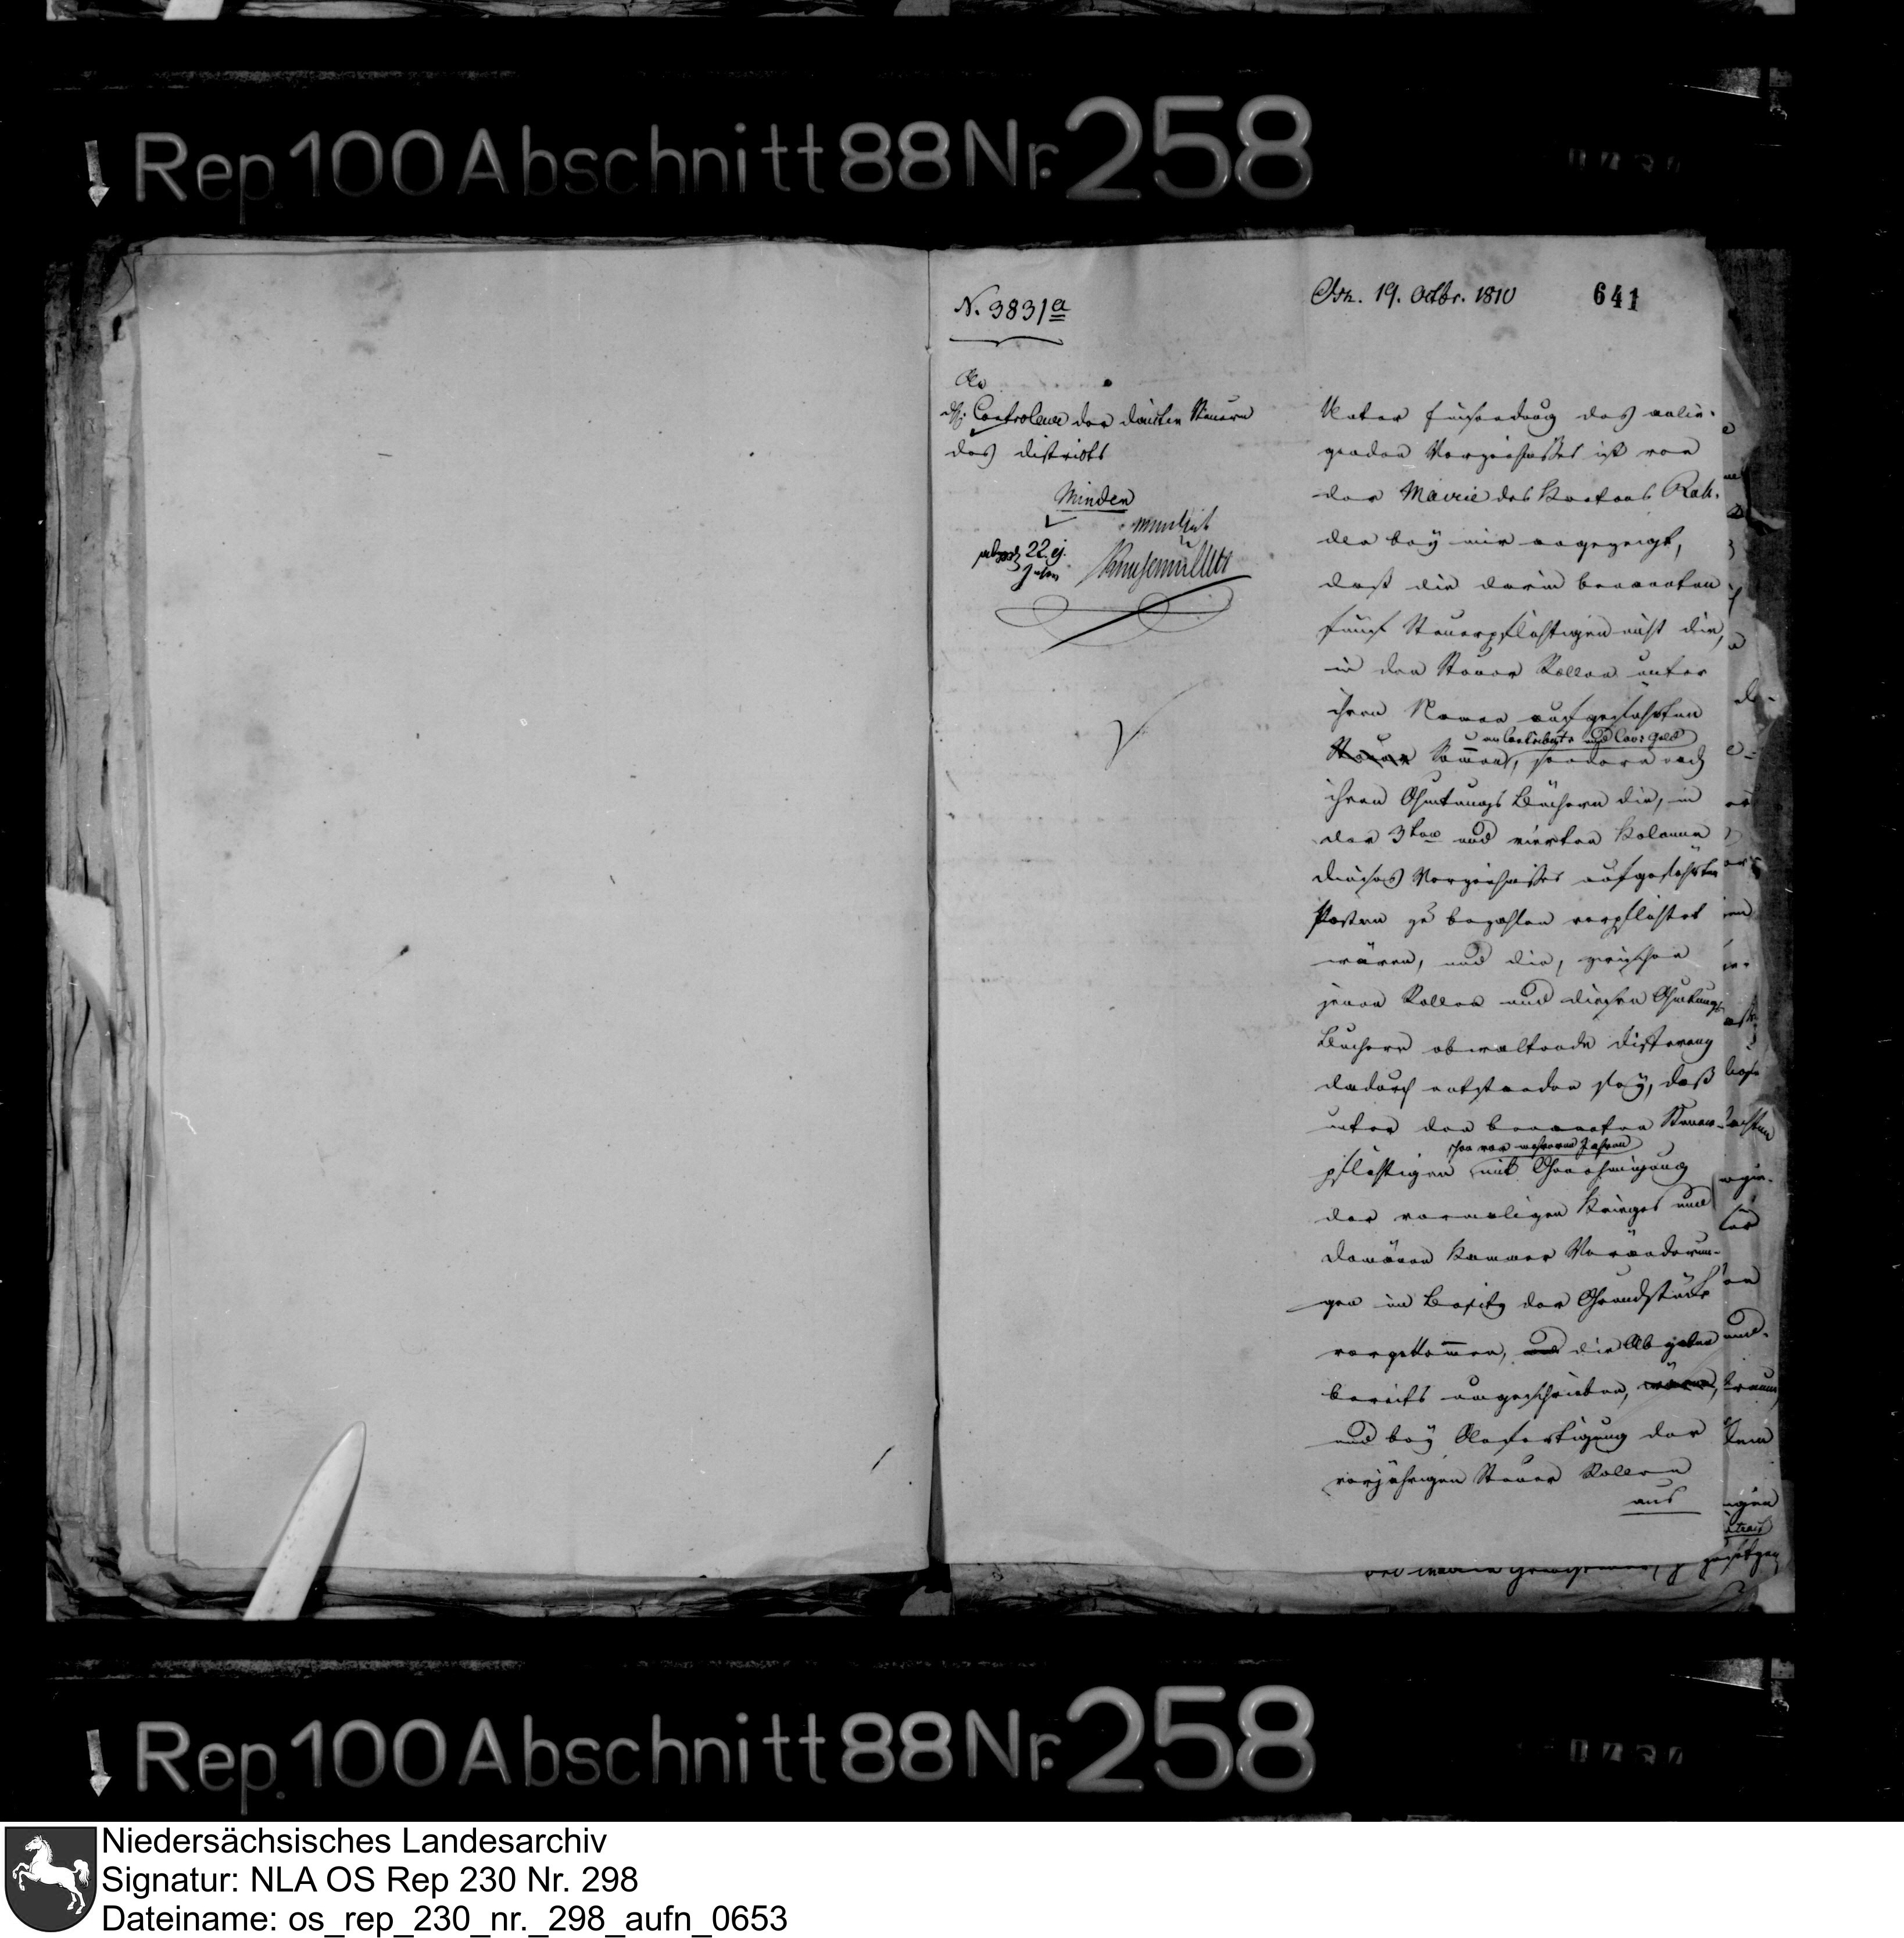 Rep. 100 Abschnitt 88 Nr. 258
N. 3831a
Osn. 19. Octbr. 1810
641
An
Controleur der directen Steuern
des Districts
Minden
22. ej.
Unter Einsendung des anlie-
genden Verzeichnißes ist von
der Mairie des Kantons Rah-
den bey mir angezeigt,
daß die darin benannten
fünf Steuerpflichtigen nicht die,
in den Steuer Rollen unter
ihren Namen aufgeführten
an Contribut. und Cavs Geld
Steuer Summen, sondern nach
ihren Quitungs Büchern die, in
der 3ten und vierten Kolonne
dieses Verzeichnißes aufgeführten
Posten zu bezahlen verpflichtet
wären, und die, zwischen
jenen Rollen und diesen Quitungs
Büchern obwaltende Differenz
dadurch entstanden sey, daß
unter den benannten Steuer-
schon vor mehreren Jahren
pflichtigen mit Genehmigung
der vormaligen Krieges und
Domänen Kammer Veränderun-
gen im Besitz der Grundstücke
vorgekommen, und die Abgaben
bereits umgeschrieben, wären,
und bey Anfertigung der
vorjährigen Steuer Rollen
aus
Rep. 100 Abschnitt 88 Nr. 258
Niedersächsisches Landesarchiv
Signatur: NLA OS Rep 230 Nr. 298
Dateiname: os_rep_230_nr._298_aufn_0653